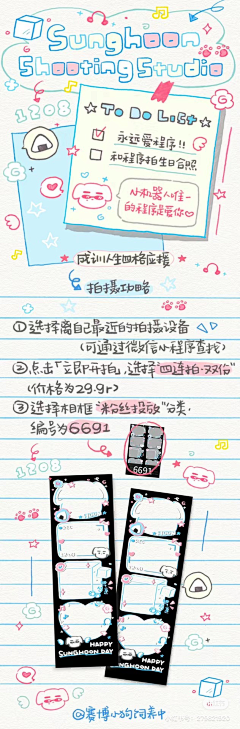 Sunghoon
Shooting Studio
1208
TO DO LIST
永远爱程序!!
和程序拍生日合照
小机器人唯一
的程序是爱你
成训人生四格应援
拍摄攻略
①选择离自己最近的拍摄设备
(可通过微信小程序查找)
②点击「立即开拍,选择"四连拍·双份"
(价格为29.9r)
③选择相框"粉丝投放"分类,
编号为6691
6691
1208
HAPPY
SUNGHOON DAY
HAPPY
SUNGHOON DAY
@赛博小狗饲养中